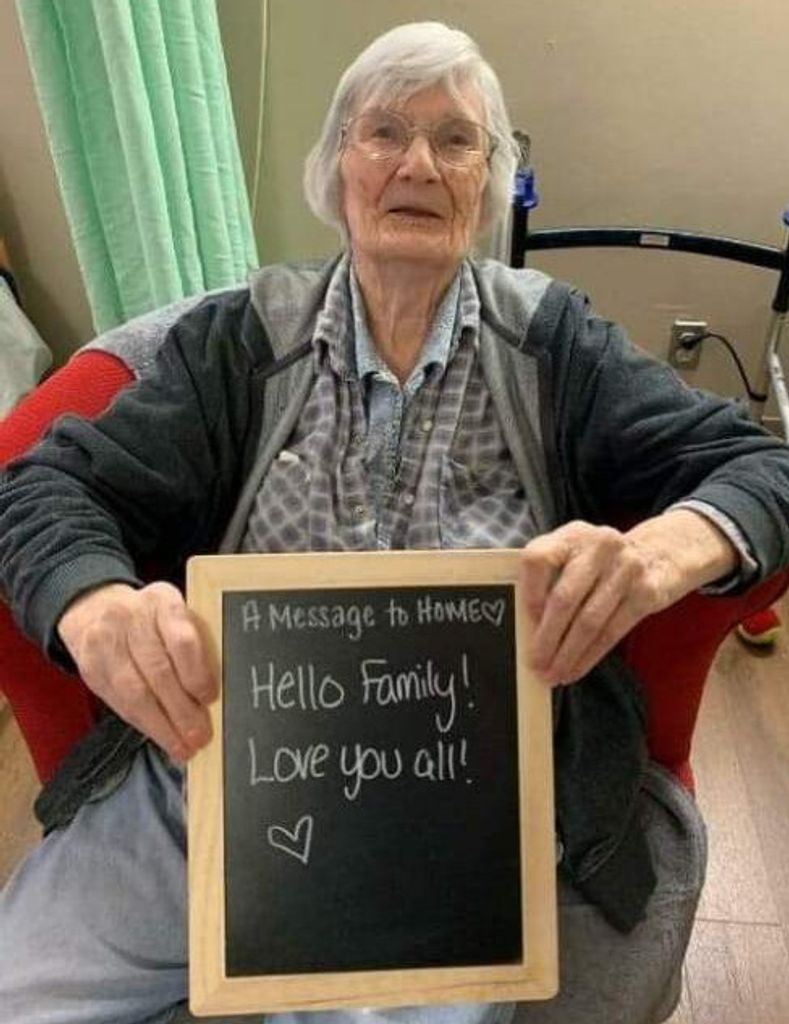 A Message to HOME♡
Hello Family!
Love you all!
♡